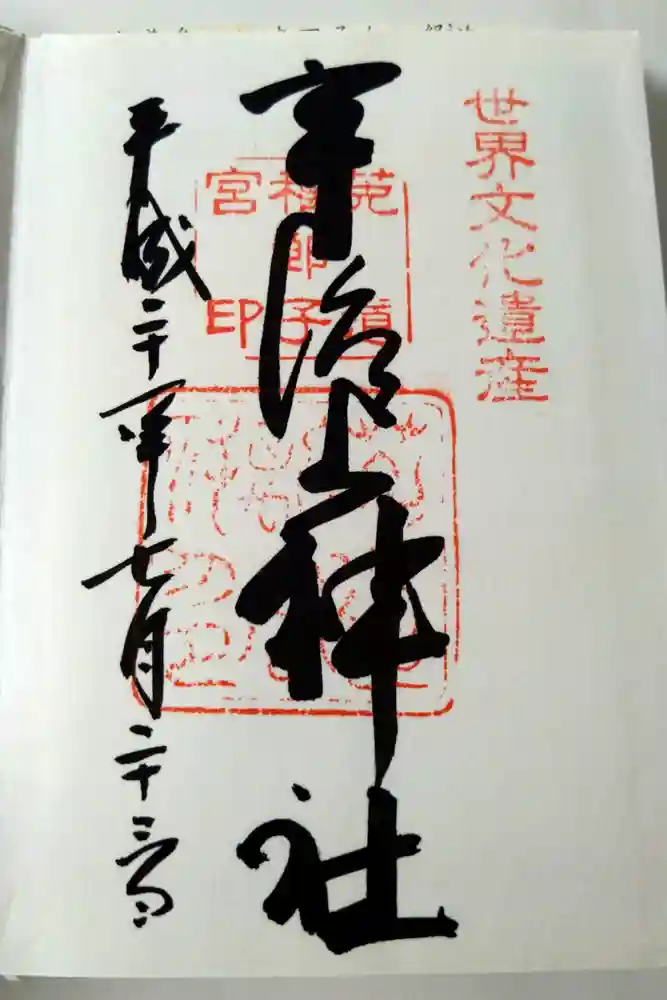 世界文化遺産
宇治上神社
菟道
稚郎子
宮印
平成二十一年七月二十三日